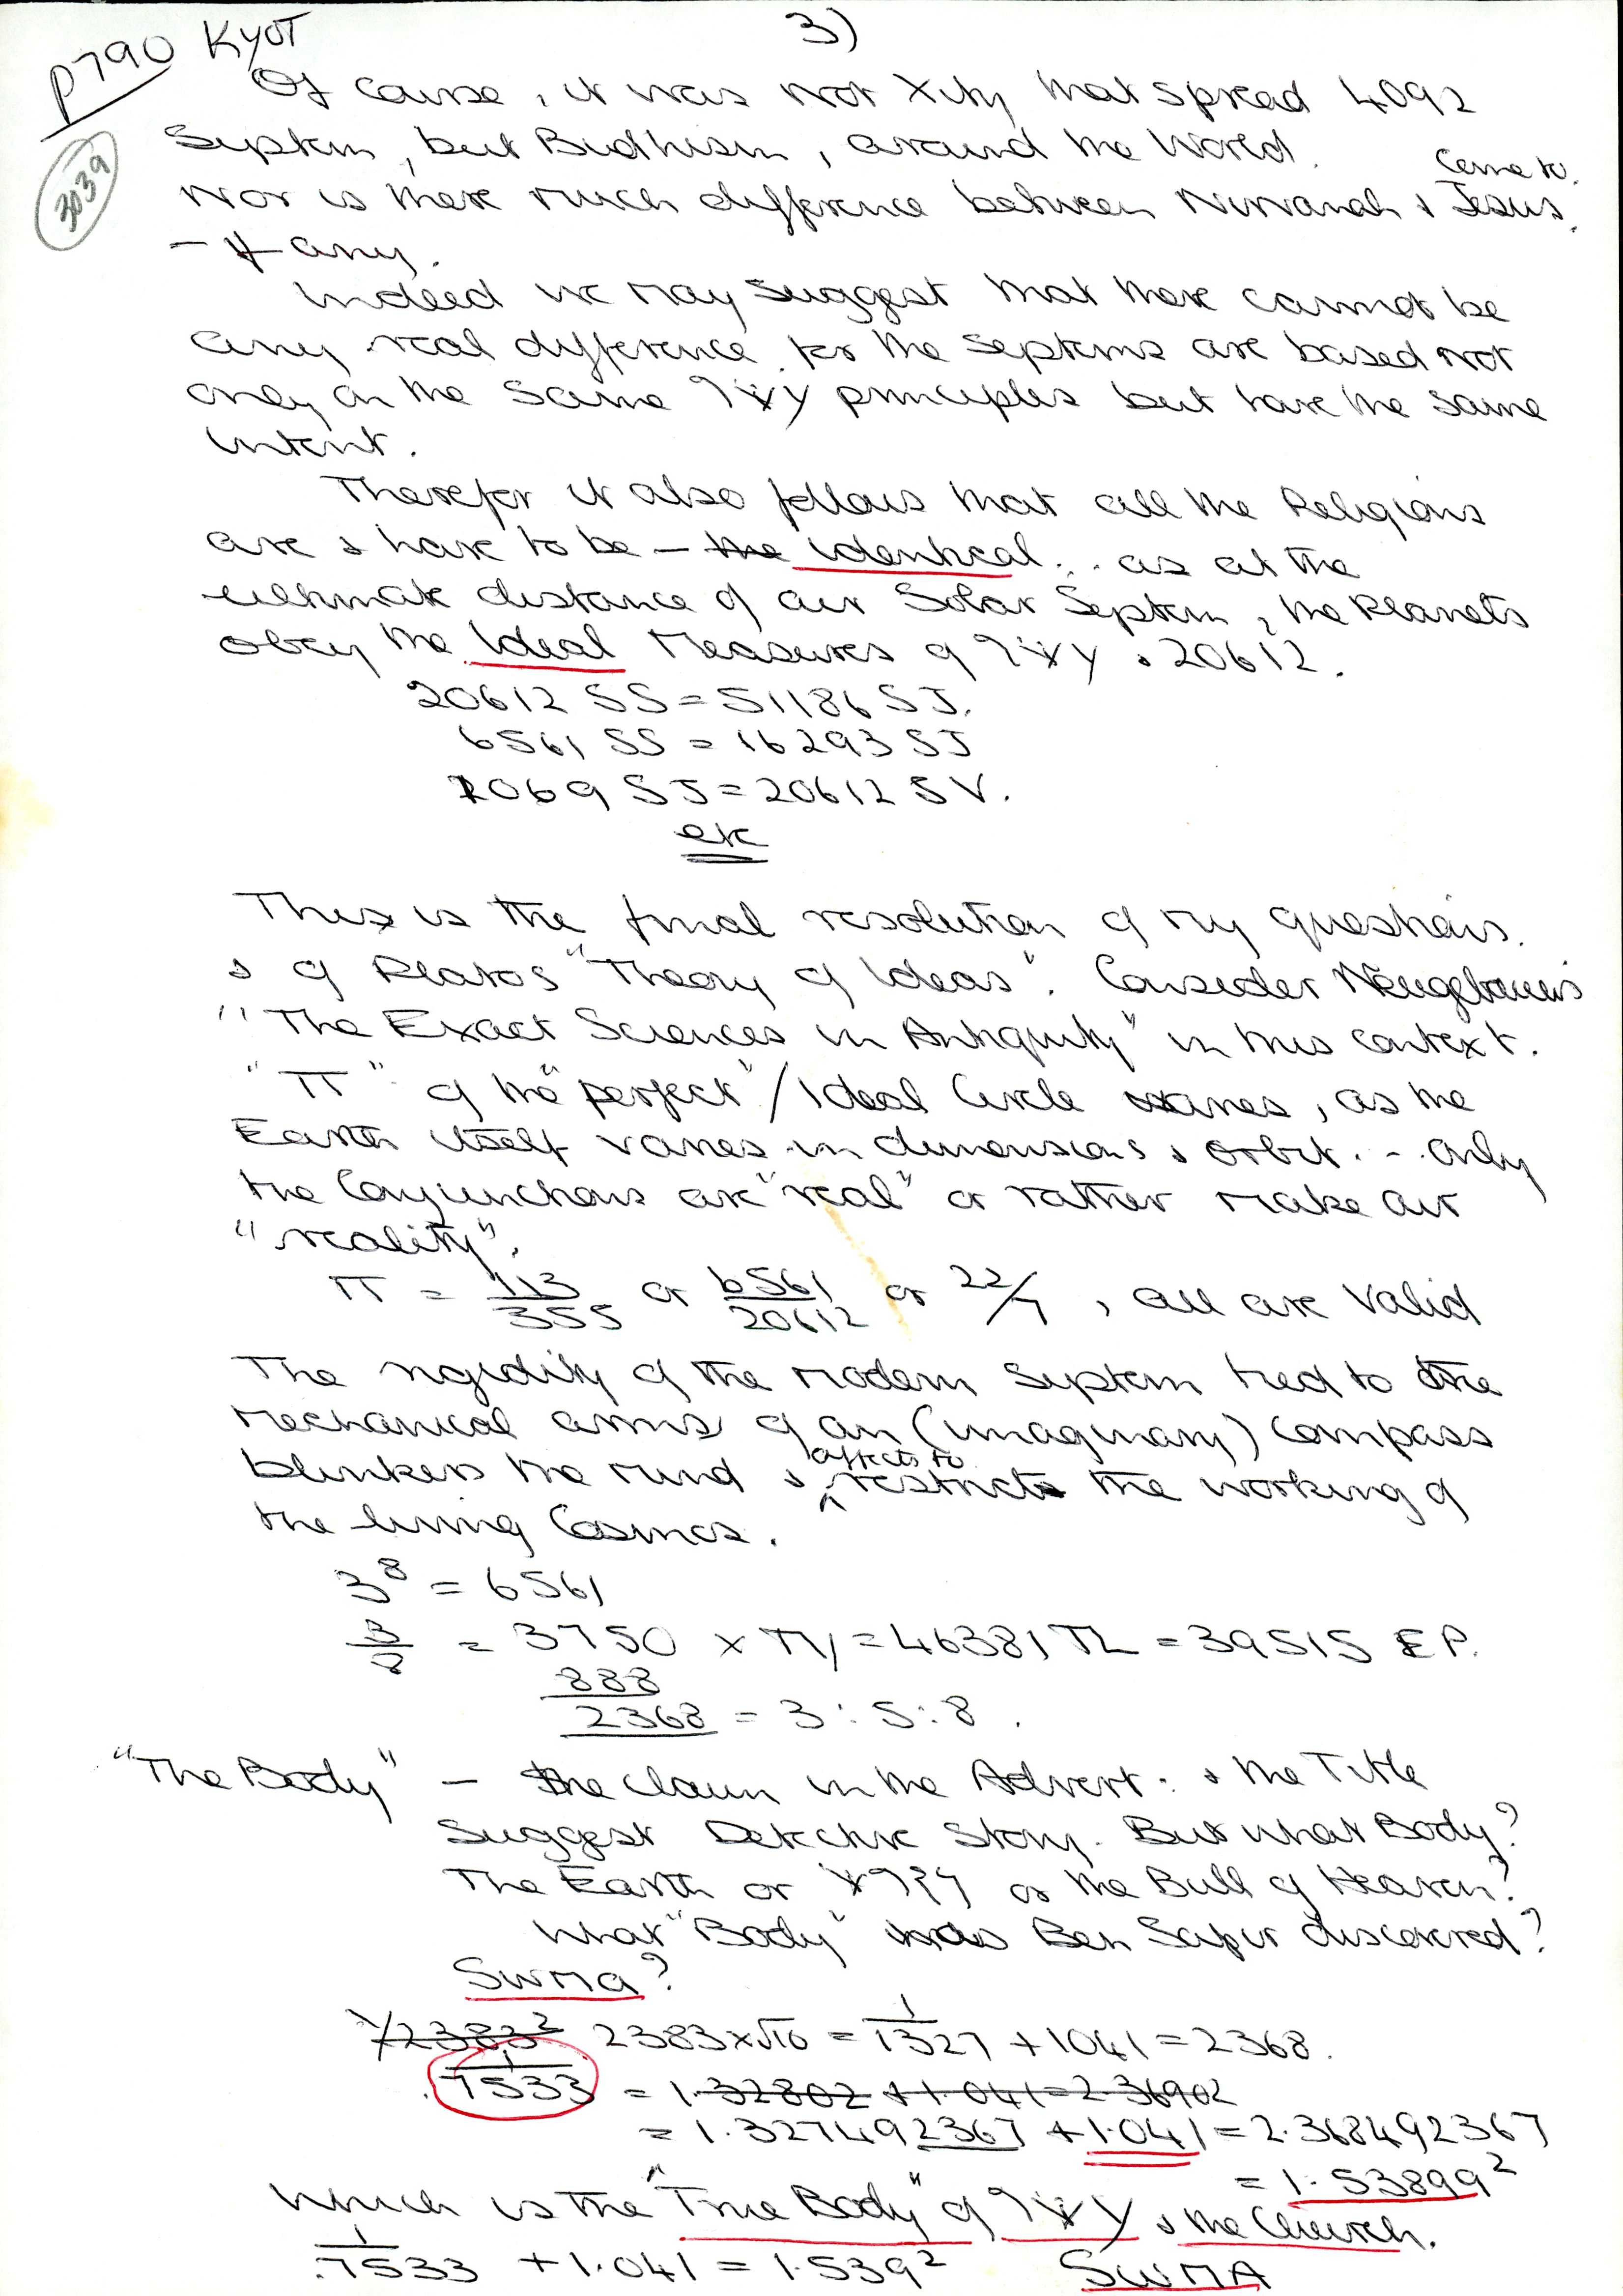 3)
P790 KyoT
3039
Of Course, it was not Xity that spread 4092
System, but Budhism, around the World.
Come to
Nor is there much difference between Nirvanah & Jesus.
– if any.
Indeed we may suggest that there cannot be
any real difference for the systems are based not
only on the same principles but have the same
intent.
Therefor it also follows that all the Religions
are & have to be – the identical... as at the
ultimate distance of our Solar System, the Planets
obey the Ideal Measures of & 20612.
20612 SS = 51186 SJ.
6561 SS = 16293 SJ
2069 SJ = 20612 SV.
etc
This is the final resolution of my questions.
& of Platos "Theory of Ideas". Consider Neugebauers
"The Exact Sciences in Antiquity" in this context.
"π" of the "perfect"/Ideal Circle varies, as the
Earth itself varies in dimensions & orbit... Only
the Conjunctions are "real" or rather make our
"reality".
π = 113/355 or 6561/20612 or 22/7, all are Valid
The rigidity of the modern system tied to the
mechanical arms of an (imaginary) compass
affects to
blinkers the mind & restricts the working of
the living Cosmos.
3⁸ = 6561
3/8 = 3750 × TY = 46381 TL = 39515 EP.
888
2368 = 3:5:8.
"The Body" – the claim in the Advert: & the Title
Suggest Detective Story. But what Body?
The Earth or or the Bull of Heaven?
What "Body" has Ben Sapir discovered?
SWMA?
1/2383² 2383×√10 = 1/1327 + 1041 = 2368.
1/.7533 = 1.32802 + 1.041 = 2.36902
= 1.327492367 + 1.041 = 2.368492367
= 1.53899²
Which is the "True Body" of & the Church.
1/.7533 + 1.041 = 1.539² SWMA